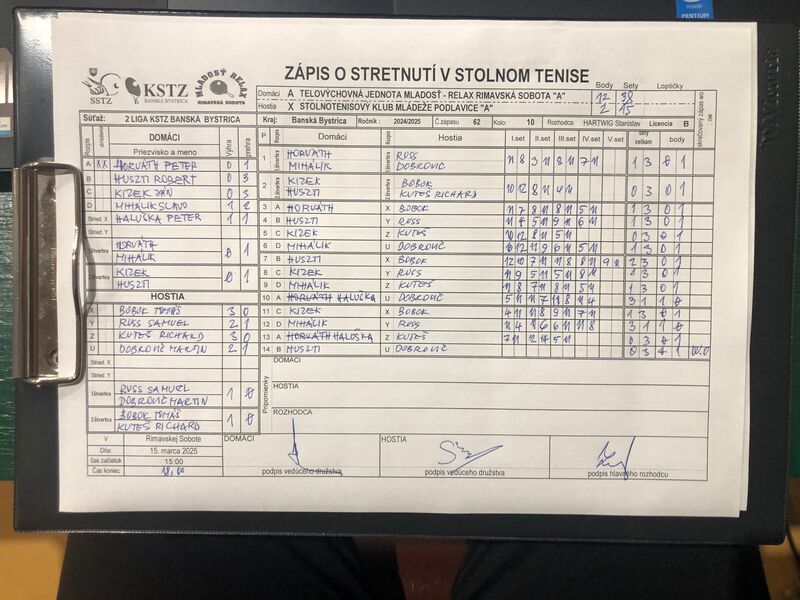 PENTIUM
SSTZ
KSTZ
BANSKÁ BYSTRICA
MLADOSŤ RELAX
RIMAVSKÁ SOBOTA
ZÁPIS O STRETNUTÍ V STOLNOM TENISE
Body Sety Loptičky
Domáci A TELOVÝCHOVNÁ JEDNOTA MLADOSŤ - RELAX RIMAVSKÁ SOBOTA "A" 12 38
Hostia X STOLNOTENISOVÝ KLUB MLÁDEŽE PODLAVICE "A" 2 15
Súťaž: 2 LIGA KSTZ BANSKÁ BYSTRICA Kraj: Banská Bystrica Ročník : 2024/2025 Č.zápasu 62 Kolo: 10 Rozhodca: HARTWIG Stanislav Licencia B
Rozpis DOMÁCI Výhra prehra
Priezvisko a meno
A XX HORVÁTH PETER 0 1
B HUSZTI RÓBERT 0 3
C KIZEK JÁN 0 3
D MIHÁLIK SLAVO 1 2
Stried. X HALUŠKA PETER 1 1
Stried. Y
1.štvorhra HORVÁTH MIHÁLIK 0 1
2.štvorhra KIZEK HUSZTI 0 1
HOSTIA
X BOBOK TOMÁŠ 3 0
Y RUSS SAMUEL 2 1
Z KUTEŠ RICHARD 3 0
U DOBROVIČ MARTIN 2 1
Stried. X
Stried. Y
1.štvorhra RUSS SAMUEL DOBROVIČ MARTIN 1 0
2.štvorhra BOBOK TOMÁŠ KUTEŠ RICHARD 1 0
P Rozpis Domáci Rozpis Hostia I.set II.set III.set IV.set V.set sety celkom body
1 1.štvorhra HORVÁTH MIHÁLIK RUSS DOBROVIČ 11 8 3 11 8 11 7 11 1 3 0 1
2 2.štvorhra KIZEK HUSZTI BOBOK KUTEŠ RICHARD 10 12 8 11 4 11 0 3 0 1
3 A HORVÁTH X BOBOK 11 7 8 11 8 11 5 11 1 3 0 1
4 B HUSZTI Y RUSS 11 4 5 11 9 11 6 11 1 3 0 1
5 C KIZEK Z KUTEŠ 10 12 8 11 5 11 0 3 0 1
6 D MIHÁLIK U DOBROVIČ 1 3 0 1
7 B HUSZTI X BOBOK 12 10 7 11 11 8 8 11 9 11 2 3 0 1
8 C KIZEK Y RUSS 11 9 5 11 5 11 8 11 1 3 0 1
9 D MIHÁLIK Z KUTEŠ 11 8 7 11 8 11 5 11 1 3 0 1
10 A HORVÁTH HALUŠKA U DOBROVIČ 3 1 1 0
11 C KIZEK X BOBOK 4 11 11 8 9 11 7 11 1 3 0 1
12 D MIHÁLIK Y RUSS 11 4 11 6 6 11 11 8 3 1 1 0
13 A HORVÁTH HALUŠKA Z KUTEŠ 7 11 12 14 5 11 0 3 0 1
14 B HUSZTI U DOBROVIČ 0 3 0 1 W.O
Pripomienky
DOMÁCI
HOSTIA
ROZHODCA
V Rimavskej Sobote
Dňa: 15. marca 2025
čas začiatok 15:00
Čas koniec 18,00
DOMÁCI HOSTIA
podpis vedúceho družstva podpis vedúceho družstva podpis hlavného rozhodcu